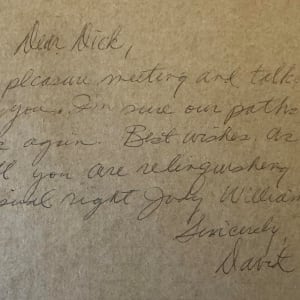 Dear Dick,
pleasure meeting and talk
you. I'm sure our paths
again. Best wishes as
you are relinquishing
right Jody William
Sincerely,
David